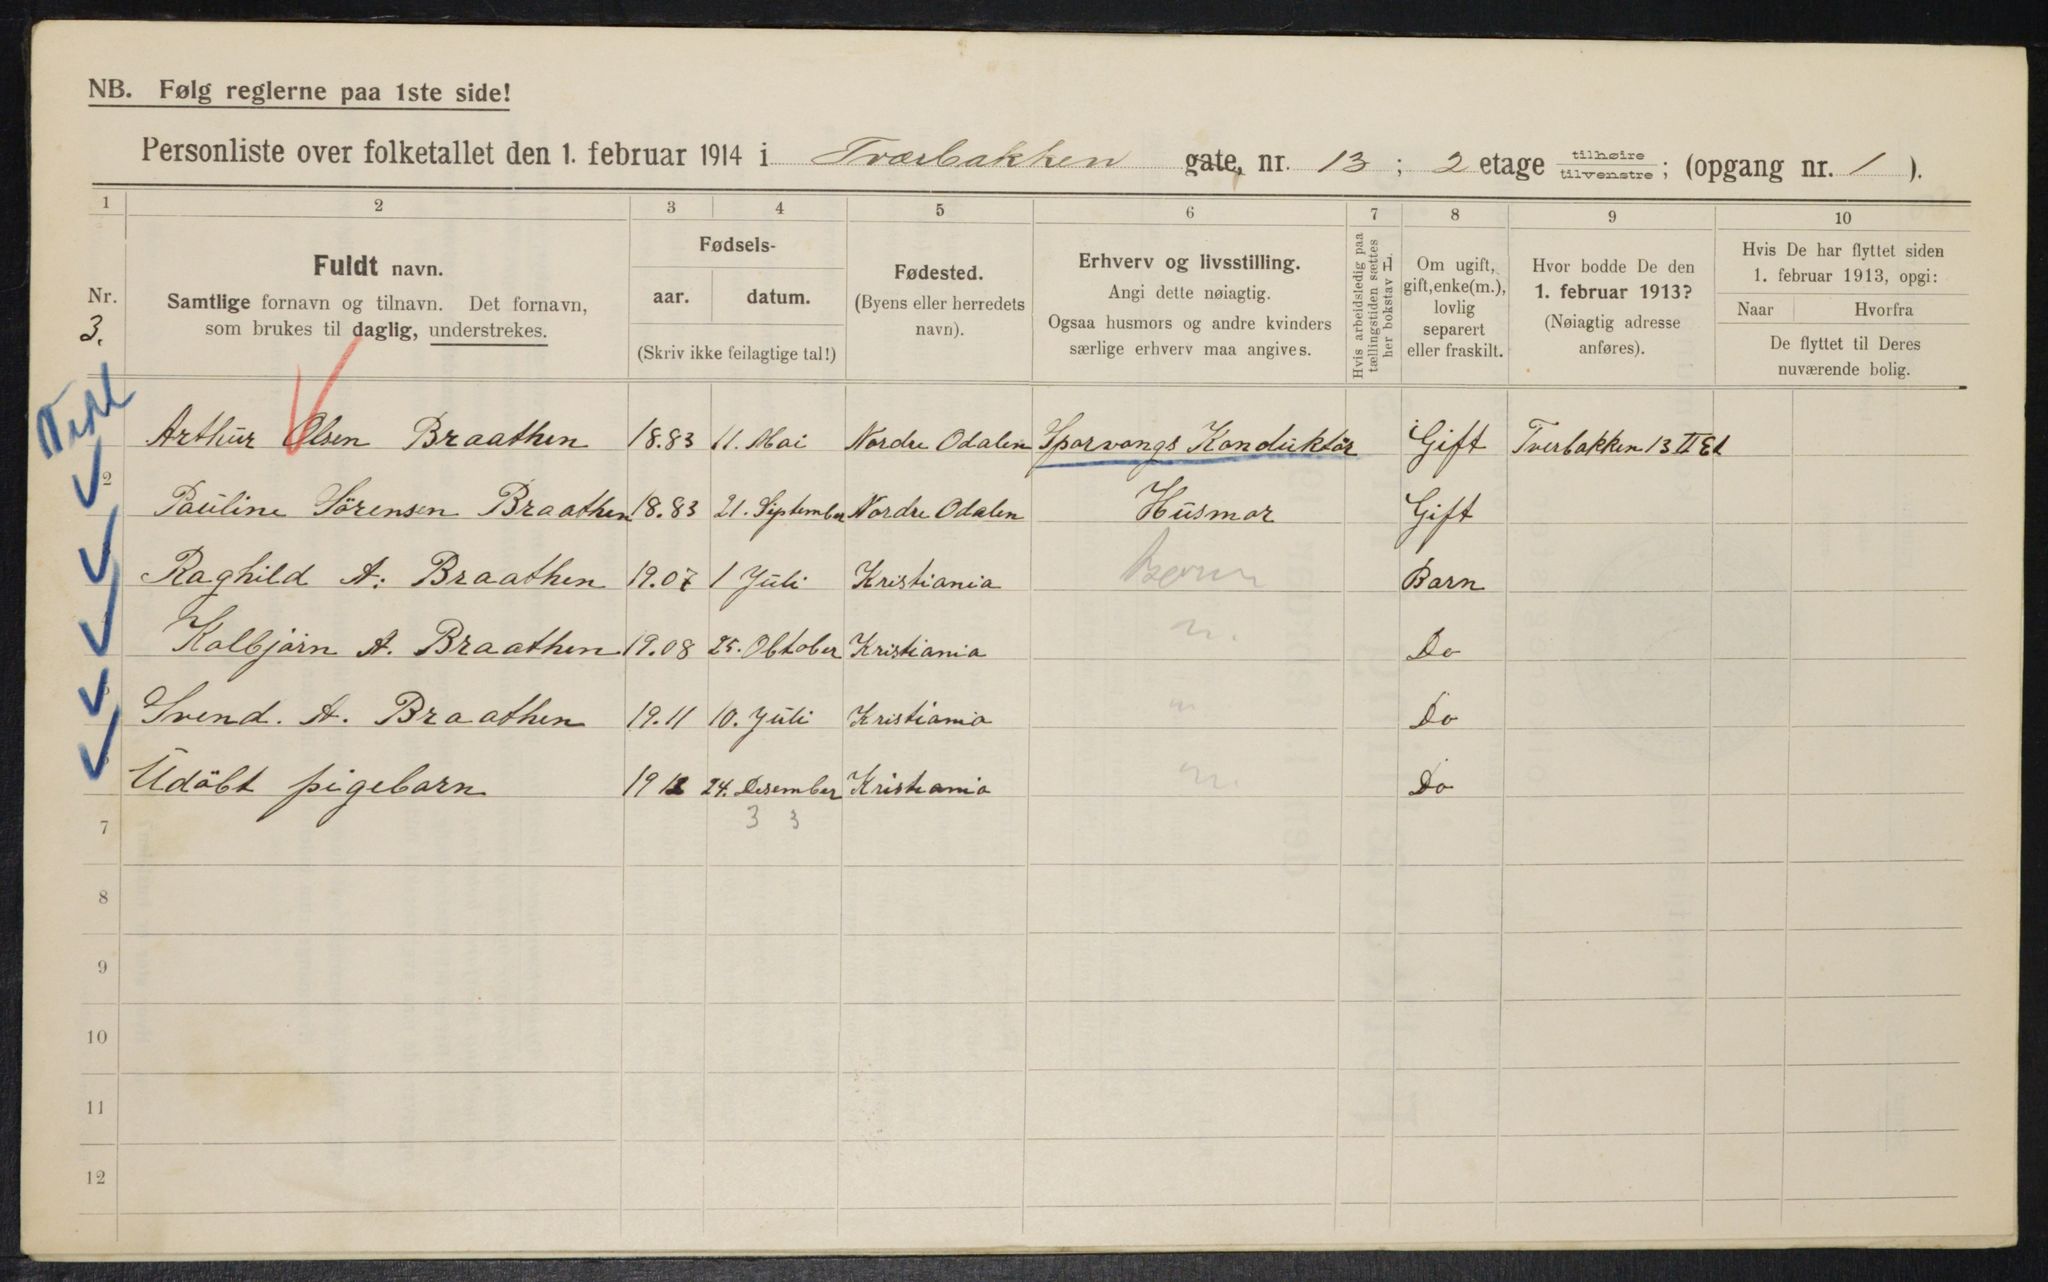 NB. Følg reglerne paa 1ste side!
Personliste over folketallet den 1. februar 1914 i Tværbakken gate, nr. 13 ; 2 etage tilhøire tilvenstre ; (opgang nr. 1 ).
1 2 3 4 5 6 7 8 9 10
Nr.
3.
Fuldt navn.
Samtlige fornavn og tilnavn. Det fornavn,
som brukes til daglig, understrekes.
Fødsels-
aar. datum.
(Skriv ikke feilagtige tal!)
Fødested.
(Byens eller herredets
navn).
Erhverv og livsstilling.
Angi dette nøiagtig.
Ogsaa husmors og andre kvinders
særlige erhverv maa angives.
Hvis arbeidsledig paa
tællingstiden sættes
her bokstav L
Om ugift,
gift, enke(m.),
lovlig
separert
eller fraskilt.
Hvor bodde De den
1. februar 1913?
(Nøiagtig adresse
anføres).
Hvis De har flyttet siden
1. februar 1913, opgi:
Naar Hvorfra
De flyttet til Deres
nuværende bolig.
Arthur Olsen Braathen 18.83 11. Mai Nordre Odalen Sporvangs Konduktör Gift Tverbakken 13 II Et
2 Pauline Sörensen Braathen 18.83 21. September Nordre Odalen Husmor Gift
Raghild A. Braathen 19.07 1 Juli Kristiania Barn
Kolbjörn A. Braathen 19.08 25. Oktober Kristiania Do
Svend. A. Braathen 19.11 10. Juli Kristiania Do
Udöbt pigebarn 24. Desember Kristiania Do
3 3
7
8
9
10
11
12